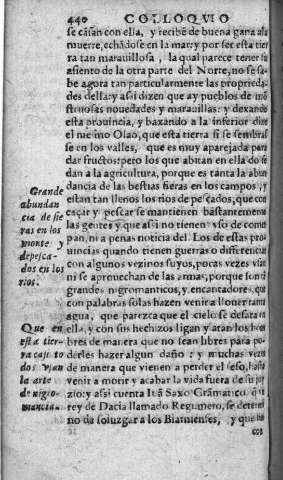 440 COLLOQVIO
se cāsan con ella, y recibē de buena gana a la
muerre, echādose en la mar: y por ser esta tier
ra tan marauillosa, la qual parece tener su
assiento de la otra parte del Norte, no se sa-
be agora tan particularmente las propreda-
des della: y assi dizen que ay pueblos de
nouedades y marauillas: y dexando
esta prouincia, y baxando a la inferior dize
el mesmo Olao, que esta tierra si se sembrasse
en los valles, que es muy aparejada para
dar frutos: pero los que abitan en ella do se
dan a la agricultura, porque es tanta la abun
dancia de las bestias fieras en los campos, y
estan tan llenos los rios de pescados, que con
caçar y pescar se mantienen bastantemente
las gentes y que assi no tienen vso de comer
pan, ni a penas noticia del. Los de estas pro
uincias quando tienen guerras o differencias
con algunos vezinos suyos, pocas vezes vsan
ni se aprouechan de las armas, porque son
grandes nigromanticos, y encantadores, que
con palabras solas hazen venir a llouer tanta
agua, que parezca que el cielo se desata en
ella, y con sus hechizos ligan y atan los hom
bres de manera que no sean libres para po-
derles hazer algun daño: y muchas vezes
de manera que vienen a perder el seso, hasta
venir a morir y acabar la vida fuera de su juy
zio: y assi cuenta Saxo Grāmatico que
rey de Dacia llamado Regumero, se determi
no da soluzgar a los Biarnienses, y que
con
Grande
abundan
cia de fie
ras en los
montes y
de pesca-
dos en los
rios.
Que en
esta tier-
ra casi to
dos vsan
la arte
de nigro-
mancia.